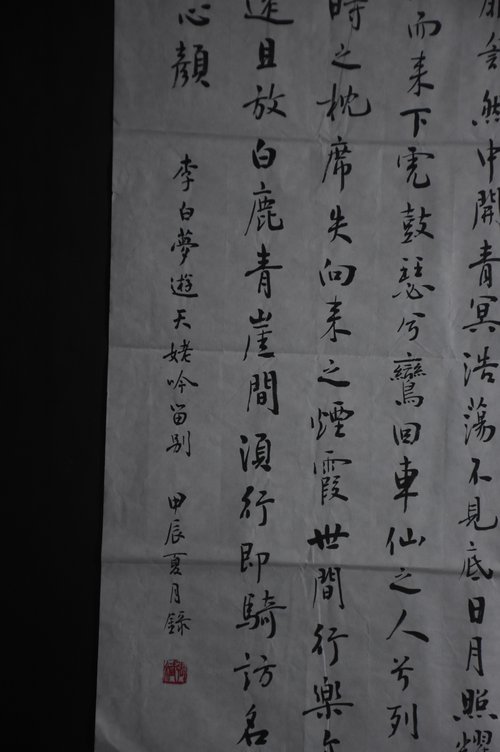 然中開青冥浩蕩不見底日月照耀
而来下霓鼓瑟兮鸞回車仙之人兮列
時之枕席失向来之煙霞世間行樂
且放白鹿青崖間須行即騎訪名
心顔
李白夢遊天姥吟留别 甲辰夏月錄